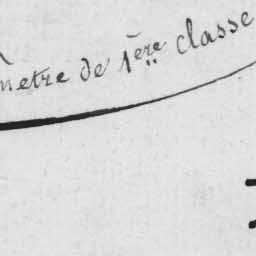 mètre de 1ère classe